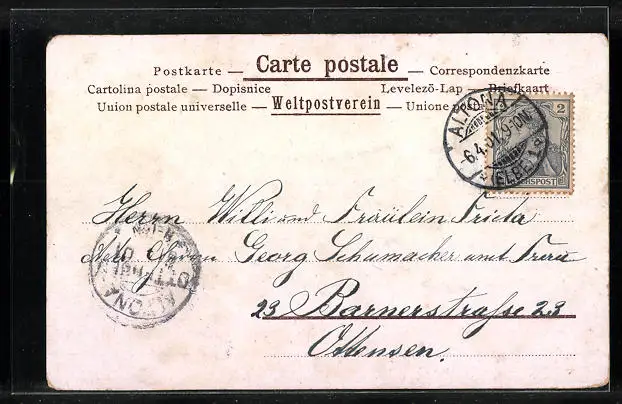 Postkarte — Carte postale — Correspondenzkarte
Cartolina postale — Dopisnice Levelezö-Lap — Briefkaart
Union postale universelle — Weltpostverein — Unione postale
ALTONA
6.4.01. 9-10N.
(ELBE)
2
REICHSPOST
Herrn Willi und Fräulein Frieda
Georg Schumacher und Frau
23 Barnerstraße 23
Ottensen.
ALTONA